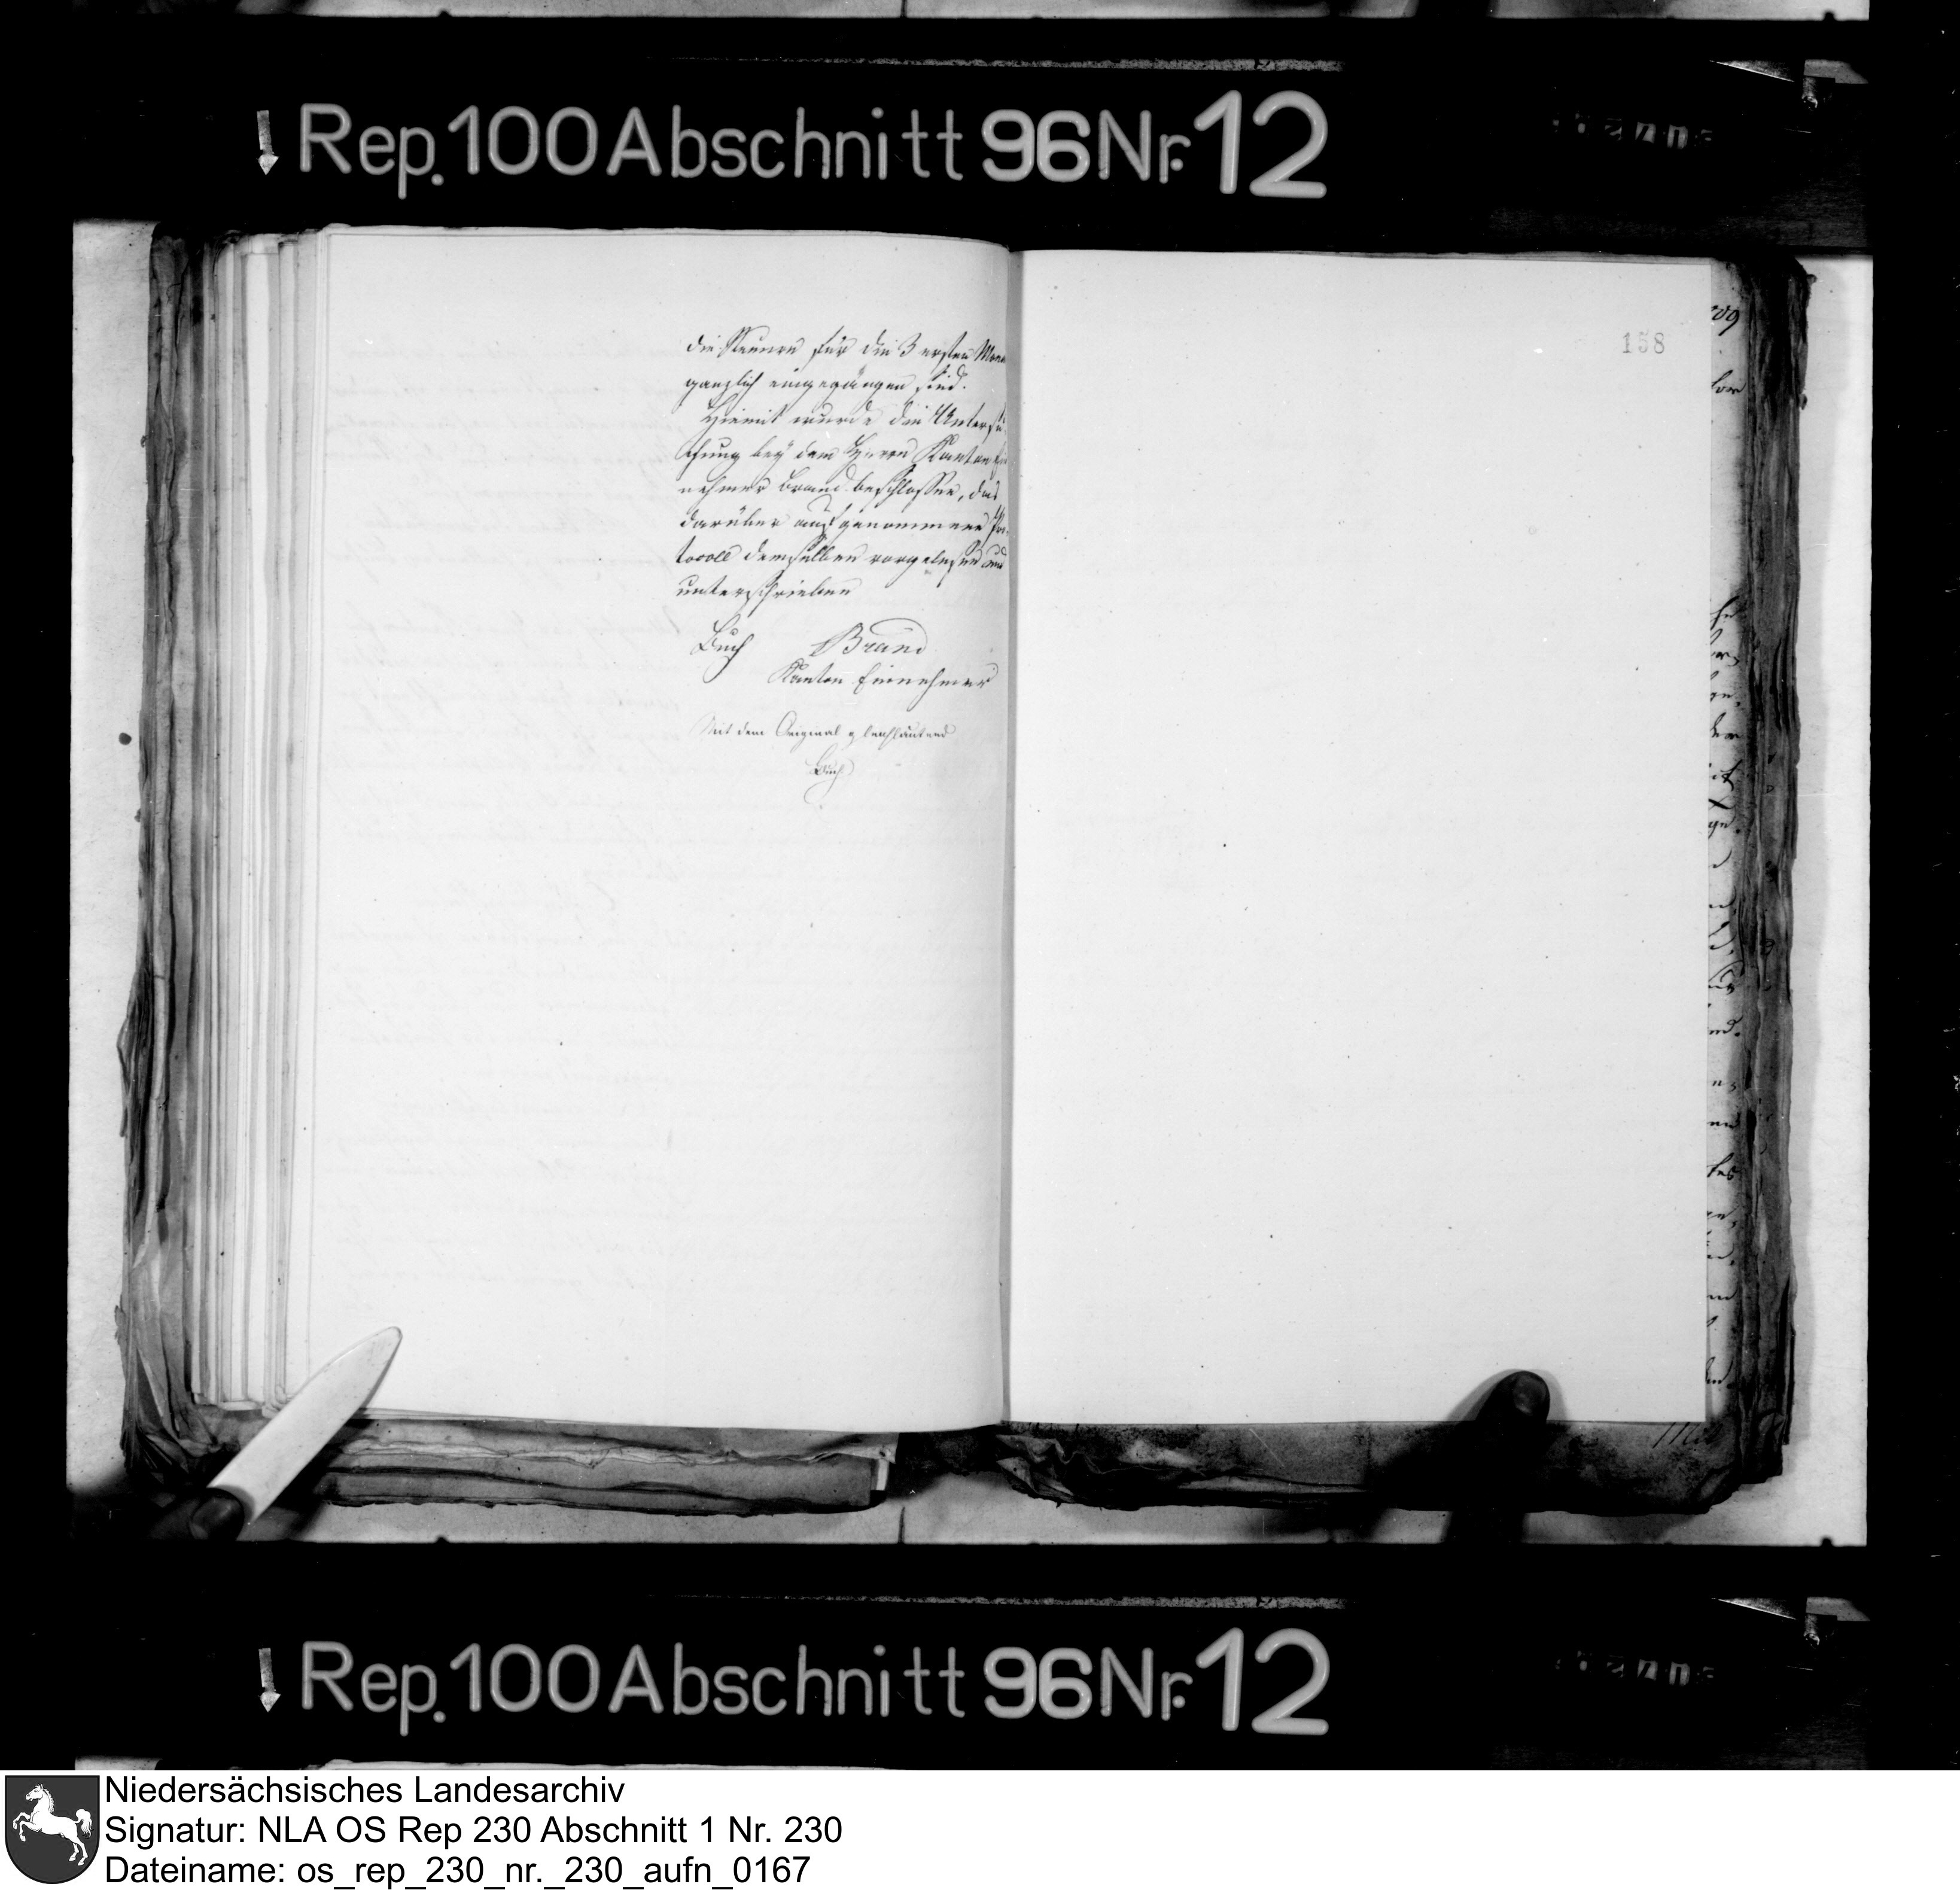 Rep. 100 Abschnitt 96 Nr. 12
die Steuern für die 3 ersten Mona
gänzlich eingegangen sind.
Hiemit wurde die Untersu
chung bey dem Herrn Kanton Ein
nehmer Brand beschlossen, das
darüber aufgenommene Pro
tocoll demselben vorgelesen und
unterschrieben
Buch Brand
Kanton Einnehmer
Mit dem Original gleichlautend
Buch
158
Rep. 100 Abschnitt 96 Nr. 12
Niedersächsisches Landesarchiv
Signatur: NLA OS Rep 230 Abschnitt 1 Nr. 230
Dateiname: os_rep_230_nr._230_aufn_0167